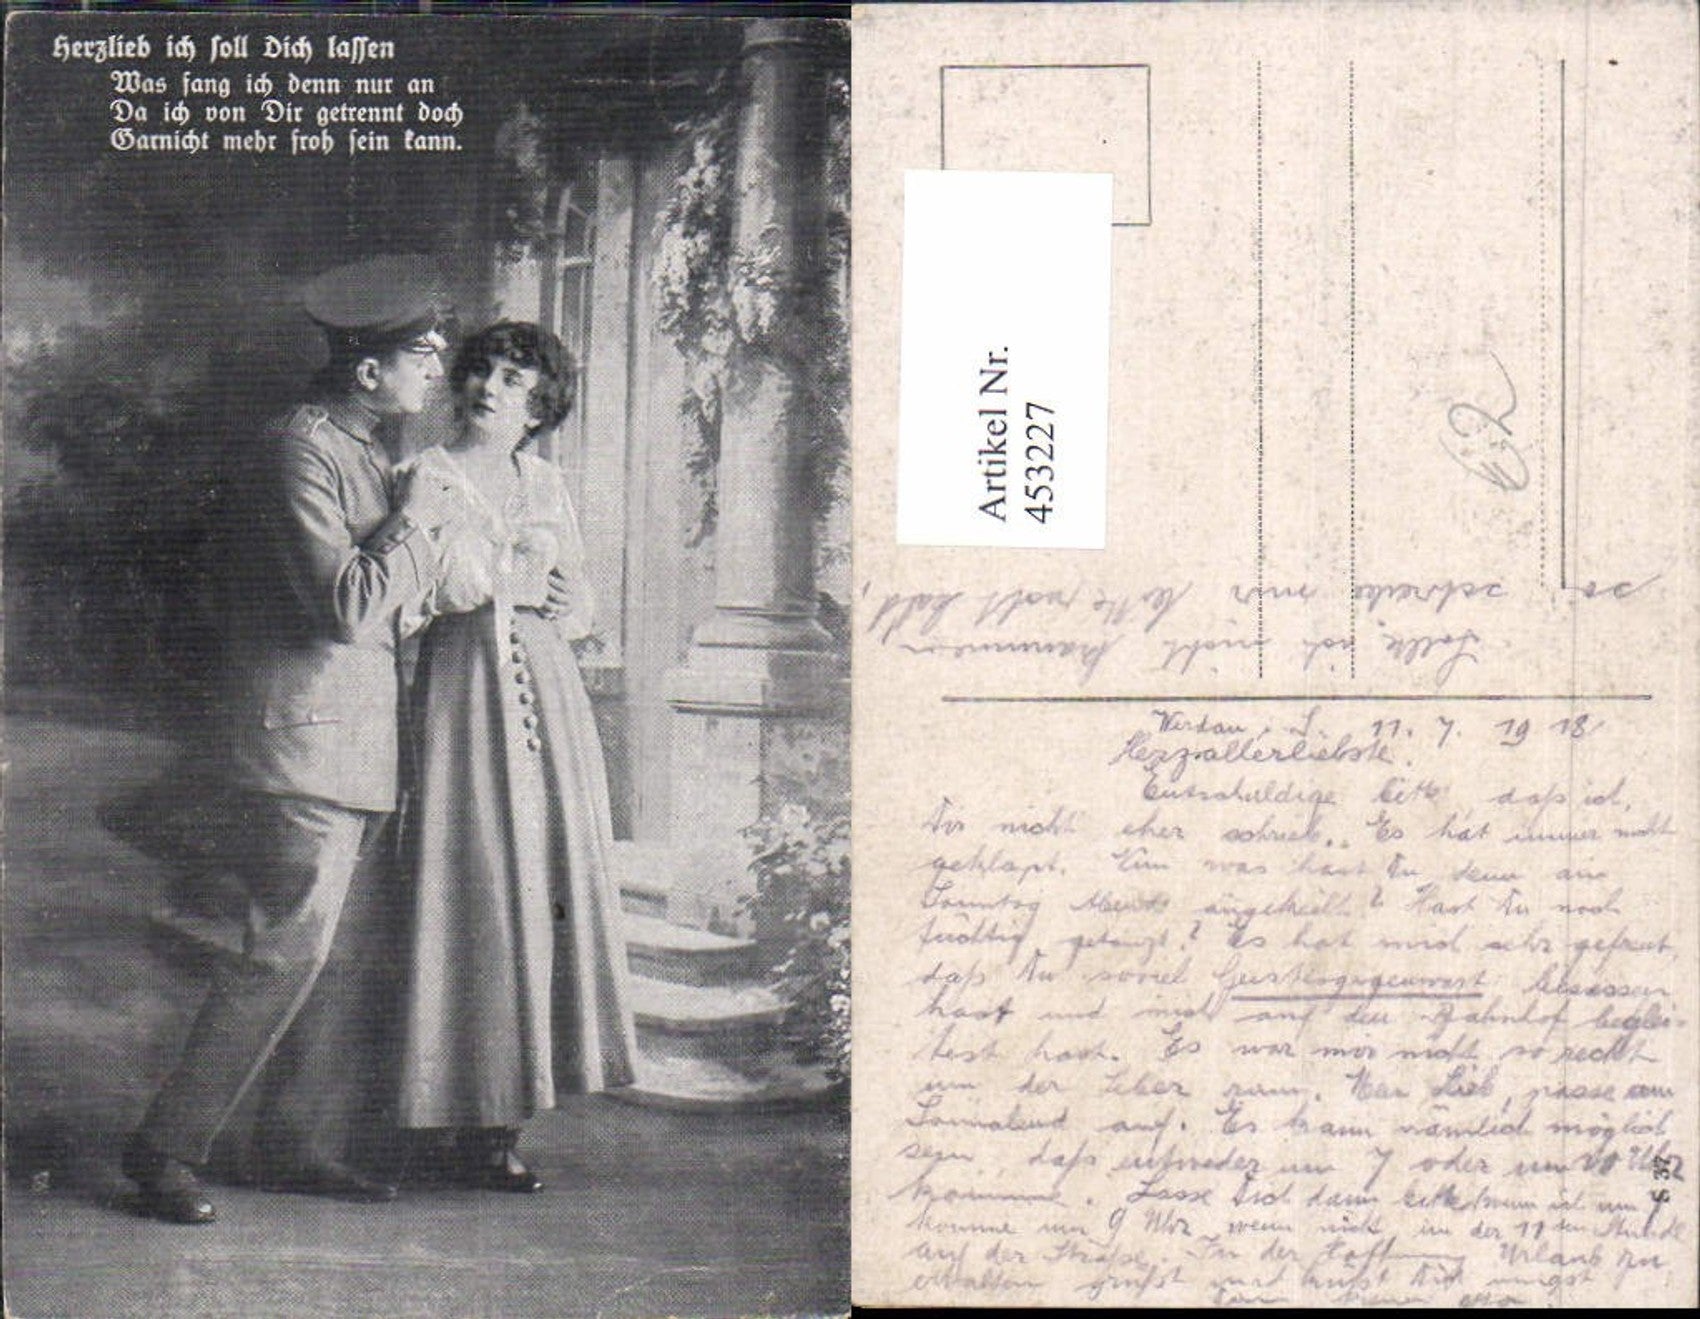 Herzlieb ich soll Dich lassen
Was fang ich denn nur an
Da ich von Dir getrennt doch
Garnicht mehr froh sein kann.
Artikel Nr.
4532227
Sollte ich nicht kommen
so schreibe mir bitte recht bald,
Werdau, 11. 7. 1918
Herzallerliebste.
Entschuldige bitte, daß ich,
Dir nicht eher schrieb. Es hat immer nicht
geklapt. Nun was hast Du denn am
Sonntag Abend angestellt? Hast Du noch
tüchtig getanzt? Es hat mich sehr gefreut,
daß Du soviel Geistesgegenwart besessen
hast und mich auf den Bahnhof beglei-
test hast. Es war mir nicht so recht
um der Leber rum. Lieb, passe am
Sonnabend auf. Es kann nämlich möglich
sein, daß entweder um 7 oder um 10 Uhr
komme. Lasse Dich dann bitte wenn ich um
komme um 9 Uhr, wenn nicht, in der 11ten Stunde
auf der Straße. In der Hoffnung Urlaub zu
erhalten grüßt und küßt Dich innigst
Dein
S 37